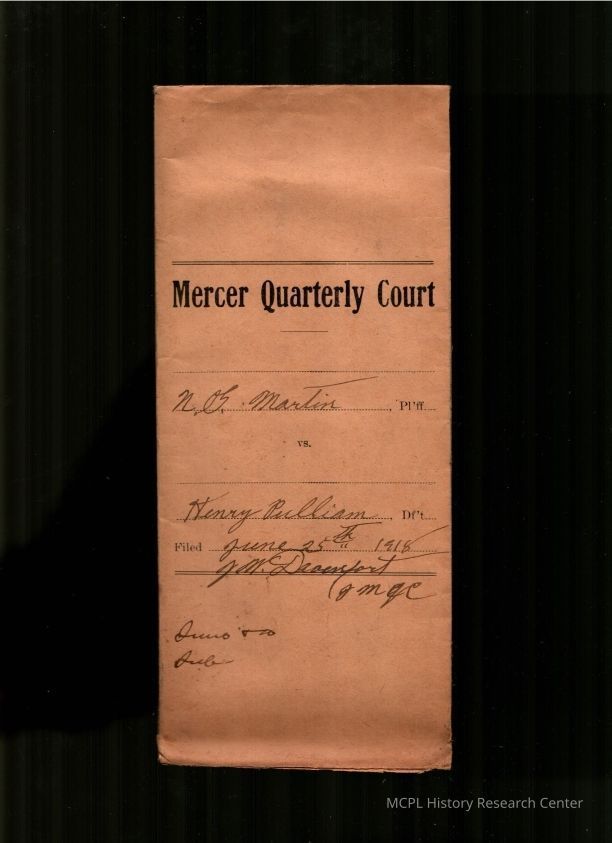 Mercer Quarterly Court
N. G. Martin, Pl'ff.
vs.
Henry Pulliam, Df't.
Filed June 25th 1918
J W. Davenport
MCPL History Research Center